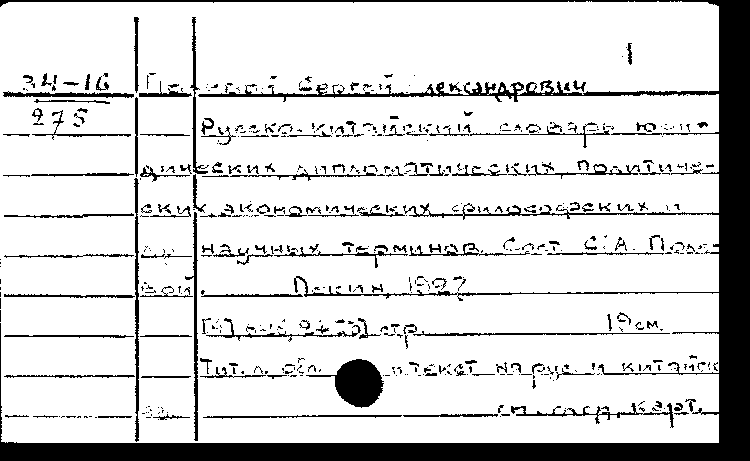 1
34-16
275
Полевой, Сергей Александрович
Русско-китайский словарь юри-
дических, дипломатических, политиче-
ских, экономических, философских и
др. научных терминов. Сост. С. А. Поле-
вой. Пекин, 1927
стр. 19 см.
Тит. л., обл. и текст на рус. и китайск.
яз. см. след. карт.